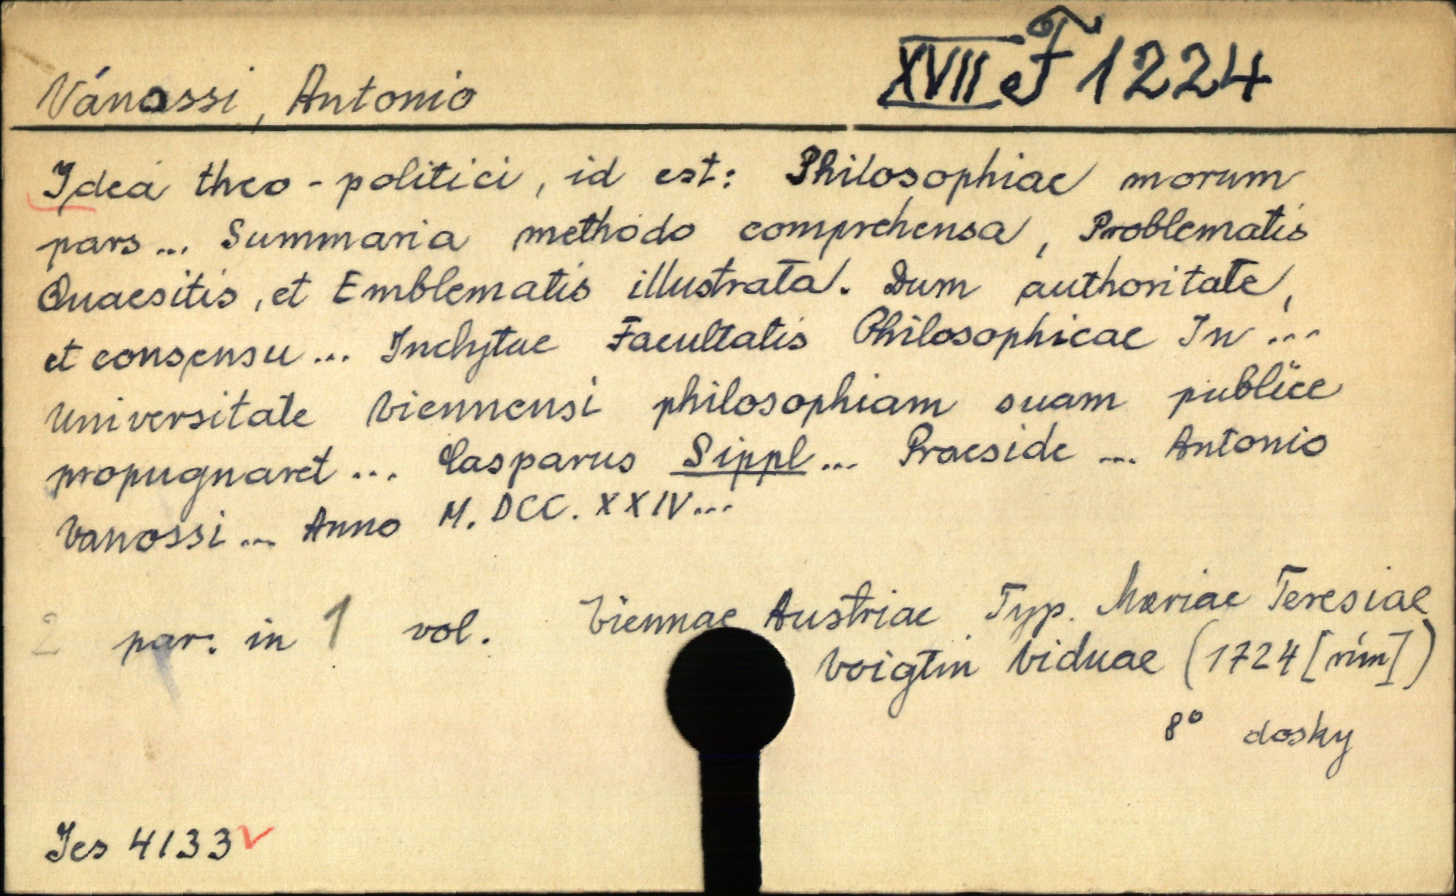 Vánossi, Antonio
XVII F 1224
Idea theo-politici, id est: Philosophiae morum
pars... Summaria methodo comprehensa, Problematis
Quaesitis, et Emblematis illustrata. Dum authoritate,
et consensu... Inclytae Facultatis Philosophicae In...
Universitate Viennensi philosophiam suam publice
propugnaret... Casparus Sippl... Praeside ... Antonio
Vanossi... Anno M. DCC. XXIV...
2 par. in 1 vol. Viennae Austriae Typ. Mariae Teresiae
Voigtin Viduae (1724 [rím])
8° dosky
Jes 4133